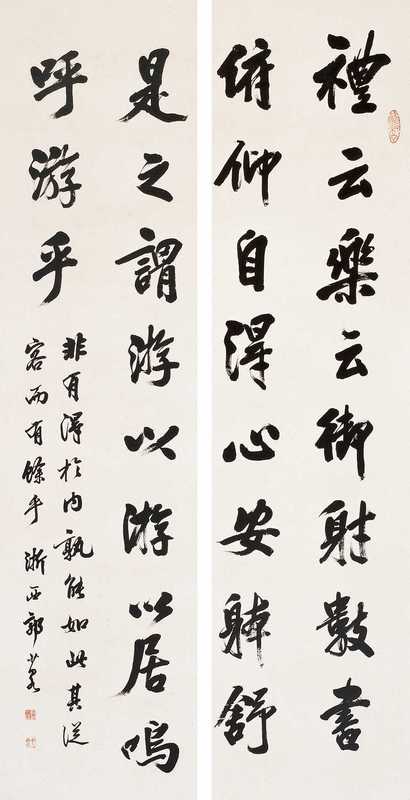 禮云樂云御射數書
俯仰自得心安躰舒
是之謂游以游以居嗚
呼游乎
非有得於內孰能如此其從
容而有餘乎 浙西郭